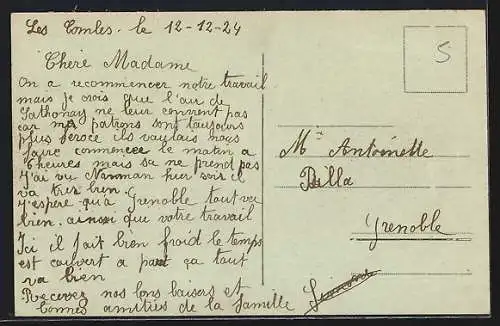 Les Combes. le 12-12-24
Chère Madame
On a recommencer notre travail
mais je crois que l'air de
Sathonay ne leur convent pas
car mes patrons sont toujours
plus feroce ils voulais nous
faire commence le matin a
heures mais sa ne prend pas
J'ai vu hier soir il
va tres bien
J'espère qu'a Grenoble tout va
bien. ainsi que votre travail
Ici il fait bien froid le temps
est couvert a part ça tout
va bien
Recevez nos bons baisers et
bonnes amitiés de la famille
5
Mme Antoinette
Billa
Grenoble